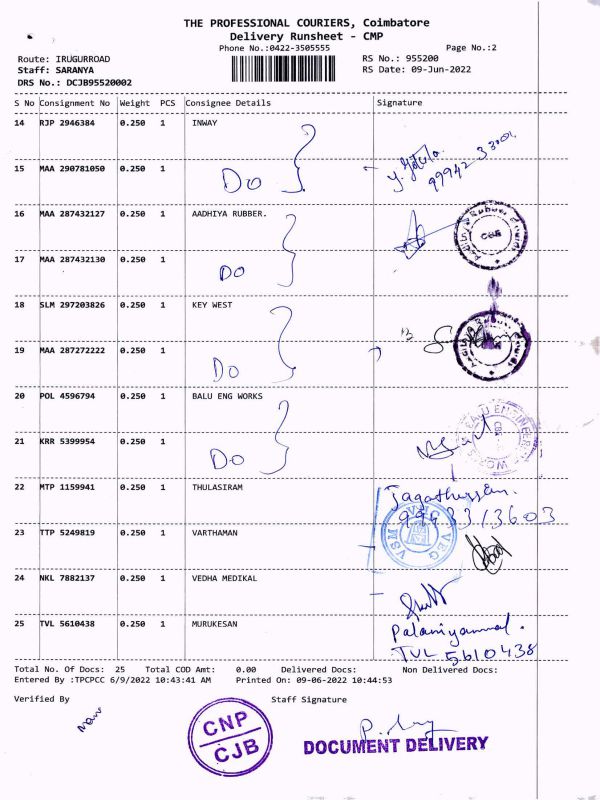 THE PROFESSIONAL COURIERS, Coimbatore
Delivery Runsheet - CMP
Phone No.:0422-3505555
Page No.:2
Route: IRUGURROAD
RS No.: 955200
Staff: SARANYA
RS Date: 09-Jun-2022
DRS No.: DCJB95520002
S No Consignment No Weight PCS Consignee Details Signature
14 RJP 2946384 0.250 1 INWAY
15 MAA 290781050 0.250 1 Do
16 MAA 287432127 0.250 1 AADHIYA RUBBER.
17 MAA 287432130 0.250 1 Do
18 SLM 297203826 0.250 1 KEY WEST
19 MAA 287272222 0.250 1 Do
20 POL 4596794 0.250 1 BALU ENG WORKS
21 KRR 5399954 0.250 1 Do
22 MTP 1159941 0.250 1 THULASIRAM
23 TTP 5249819 0.250 1 VARTHAMAN
24 NKL 7882137 0.250 1 VEDHA MEDIKAL
25 TVL 5610438 0.250 1 MURUKESAN
Palaniyammal.
TVL 5610438
Total No. Of Docs: 25 Total COD Amt: 0.00 Delivered Docs: Non Delivered Docs:
Entered By :TPCPCC 6/9/2022 10:43:41 AM Printed On: 09-06-2022 10:44:53
Verified By
Staff Signature
CNP
CJB
DOCUMENT DELIVERY